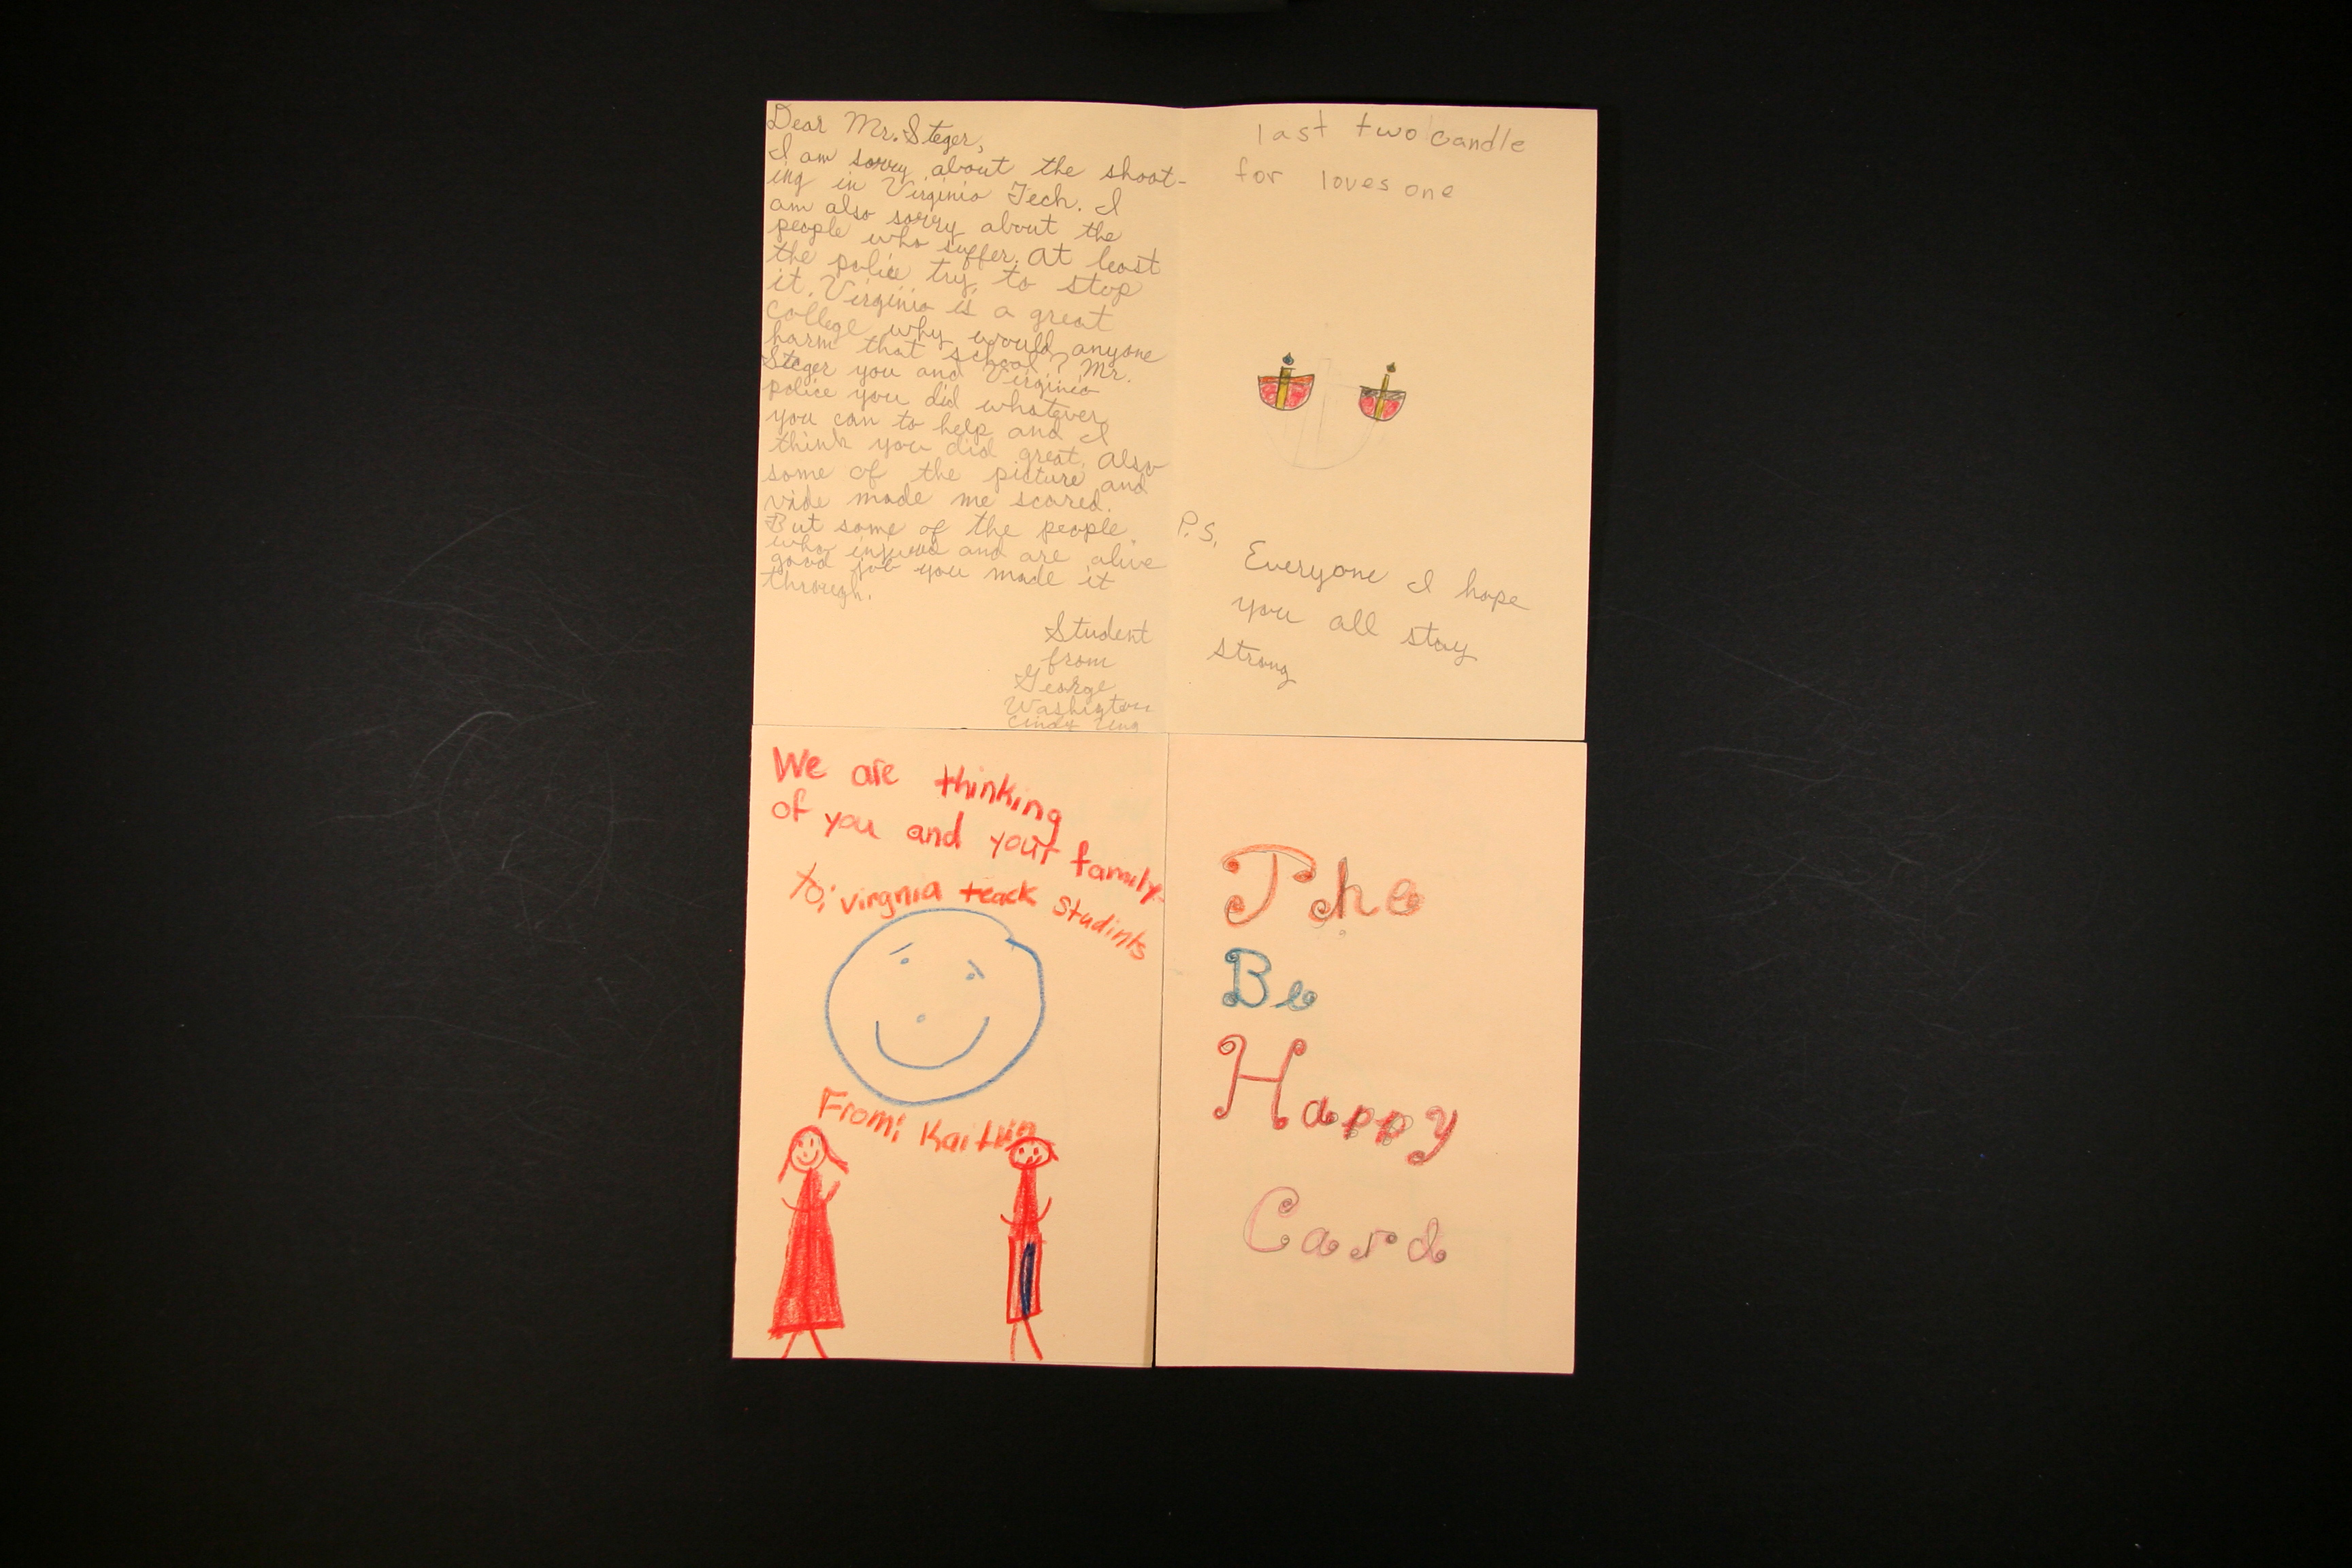 Dear Mr. Steger,
I am sorry about the shoot-
ing in Virginia Tech. I
am also sorry about the
people who suffer. At least
the police try to stop
it. Virginia is a great
College why would anyone
harm that school? Mr.
Steger you and Virginia
police you did whatever
you can to help and I
think you did great. Also
some of the picture and
vide made me scared.
But some of the people
who injured and are alive
good job you made it
through.
Student
from
George
Washington
Cindy
last two candle
for loves one
P.S.
Everyone I hope
you all stay
strong
We are thinking
of you and your family
to: virgnia teack Studints
From: Kaitlin
The
Be
Happy
Card